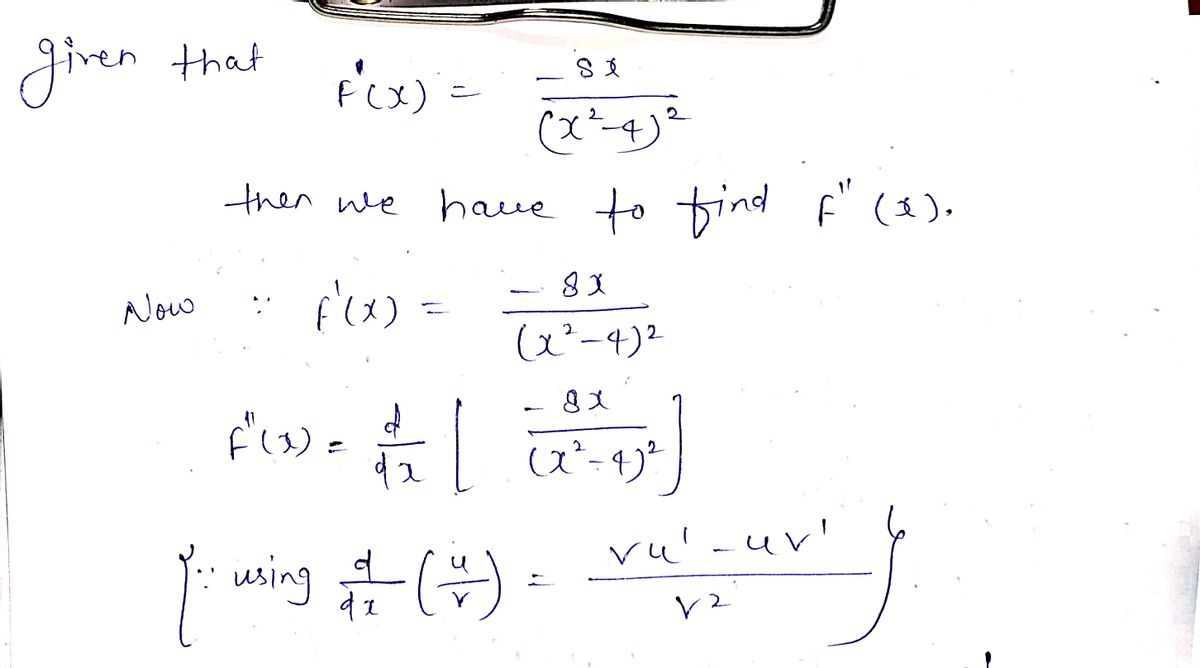 given that F'(x) = -8x / (x²-4)²
then we have to find F" (x).
Now ∵ f'(x) = -8x / (x²-4)²
F"(x) = d/dx [ -8x / (x²-4)² ]
{∵ using d/dx (u/v) = vu' - uv' / v² }